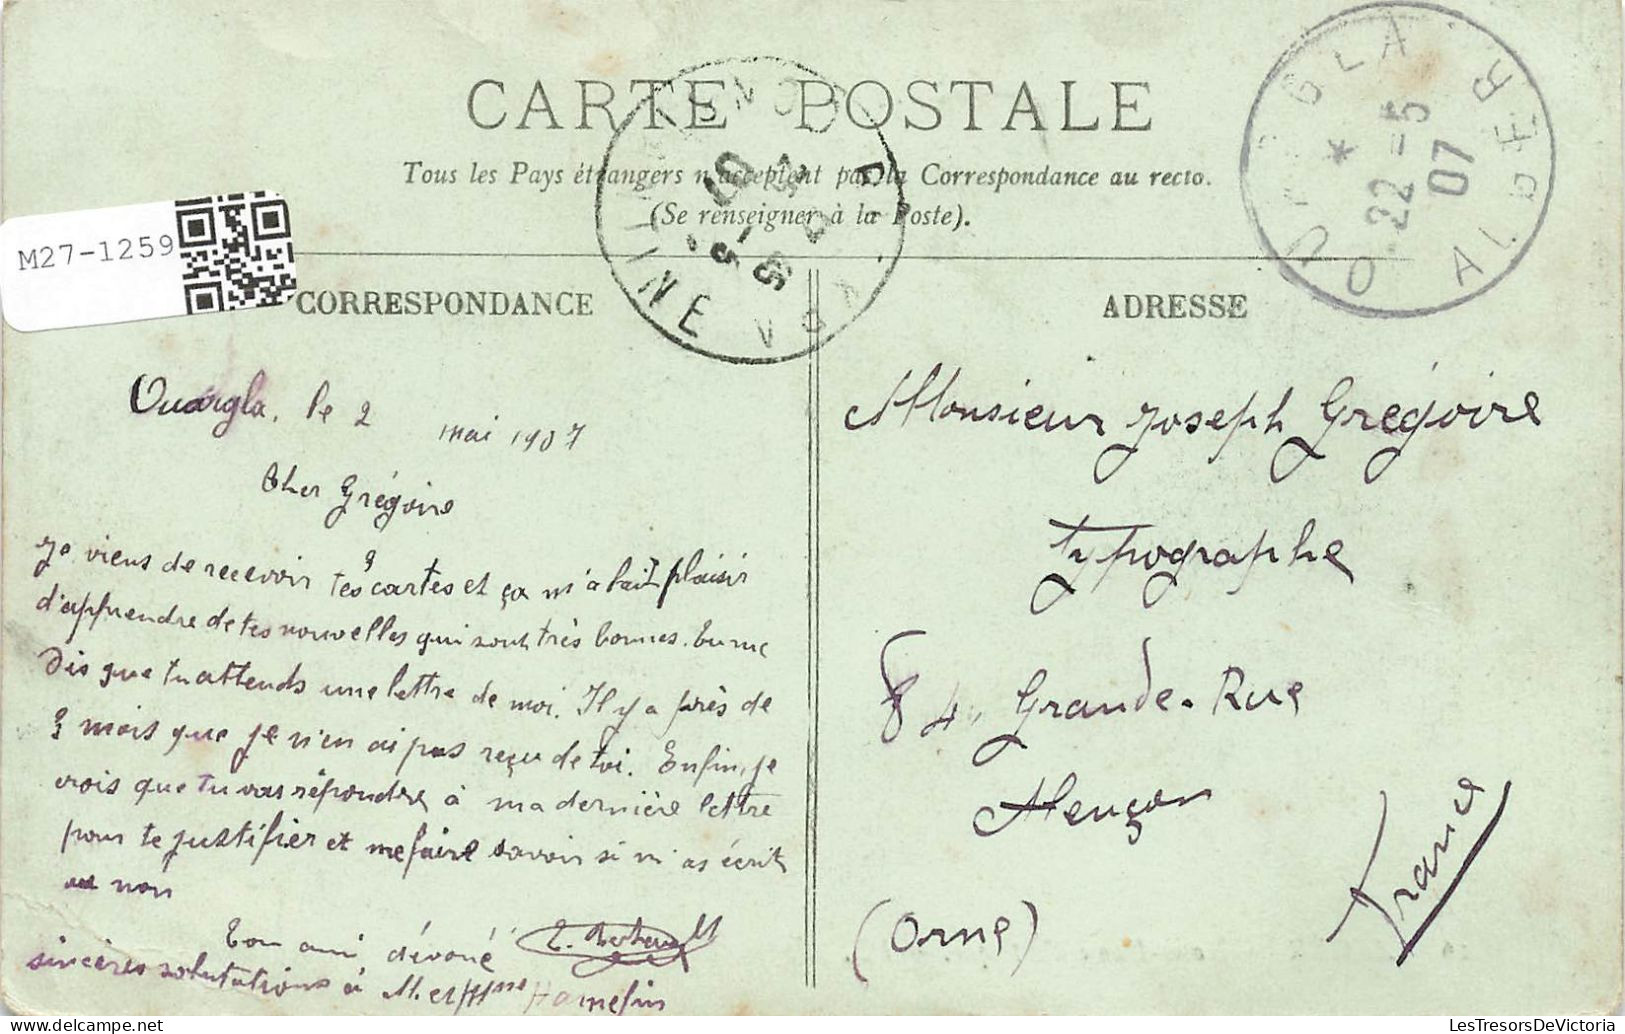 CARTE POSTALE
Tous les Pays étrangers n'acceptent pas la Correspondance au recto.
(Se renseigner à la Poste).
M27-1259
CORRESPONDANCE
ADRESSE
OUARGLA
* 22 -5
07
ALGER
Ouargla, le 2 mai 1907
Cher Grégoire
Je viens de recevoir tes 9 cartes et ça m'a fait plaisir
d'apprendre de tes nouvelles qui sont très bonnes. Tu me
dis que tu attends une lettre de moi. Il y a près de
3 mois que je n'en ai pas reçu de toi. Enfin, je
crois que tu vas répondre à ma dernière lettre
pour te justifier et me faire savoir si m'as écrit
ou non
Ton ami dévoué
sincères salutations à M. et Mme Hamelin
Monsieur Joseph Grégoire
typographe
84, Grande-Rue
Alençon
(Orne)
France
LesTresorsDeVictoria.com